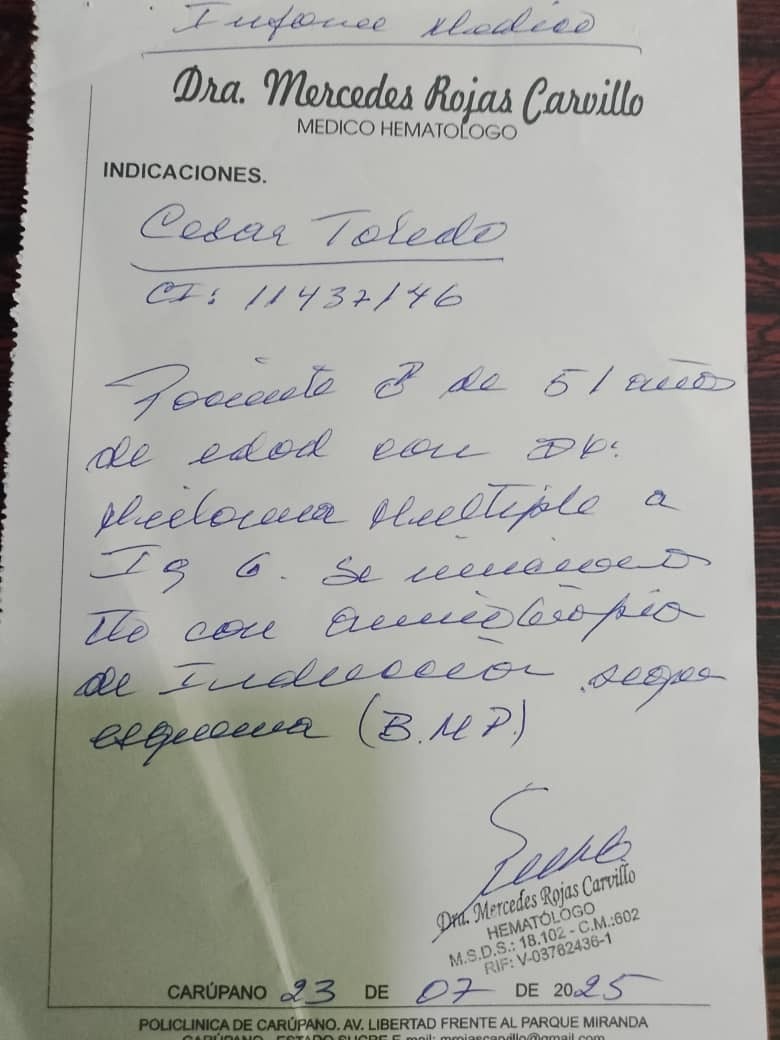 Informe Medico
Dra. Mercedes Rojas Carvillo
MEDICO HEMATOLOGO
INDICACIONES.
Cesar Toledo
CI: 11437146
Paciente ♂ de 51 años
de edad con Dx:
Mieloma Multiple a
Ig G. Se
tto con quimioterapia
de Inducción segun
esquema (B.M.P.)
Dra. Mercedes Rojas Carvillo
HEMATÓLOGO
M.S.D.S.: 18.102 - C.M.:602
RIF: V-03762436-1
CARÚPANO 23 DE 07 DE 2025
POLICLINICA DE CARÚPANO. AV. LIBERTAD FRENTE AL PARQUE MIRANDA
CARÚPANO - ESTADO SUCRE E-mail: mrojascarvillo@gmail.com